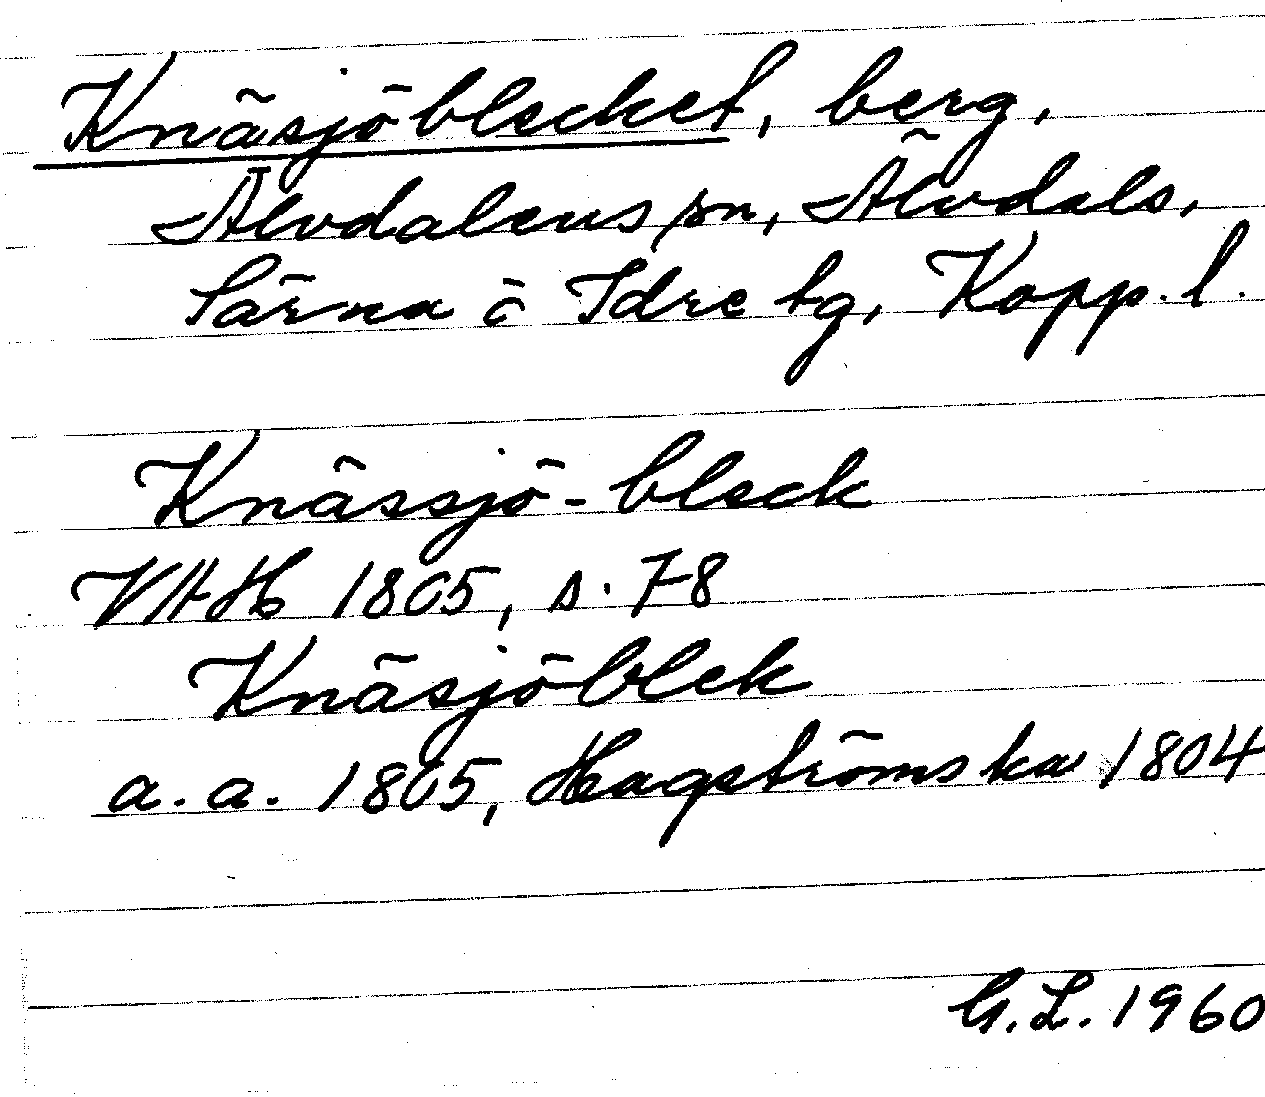 Knäsjöblecket, berg,
Älvdalens sn, Älvdals,
Särna o Idre tg, Kopp. l.
Knässjö-bleck
VHAH 1805, s. 78
Knäsjöblek
a. a. 1805, Hagströmska 1804
G. L. 1960